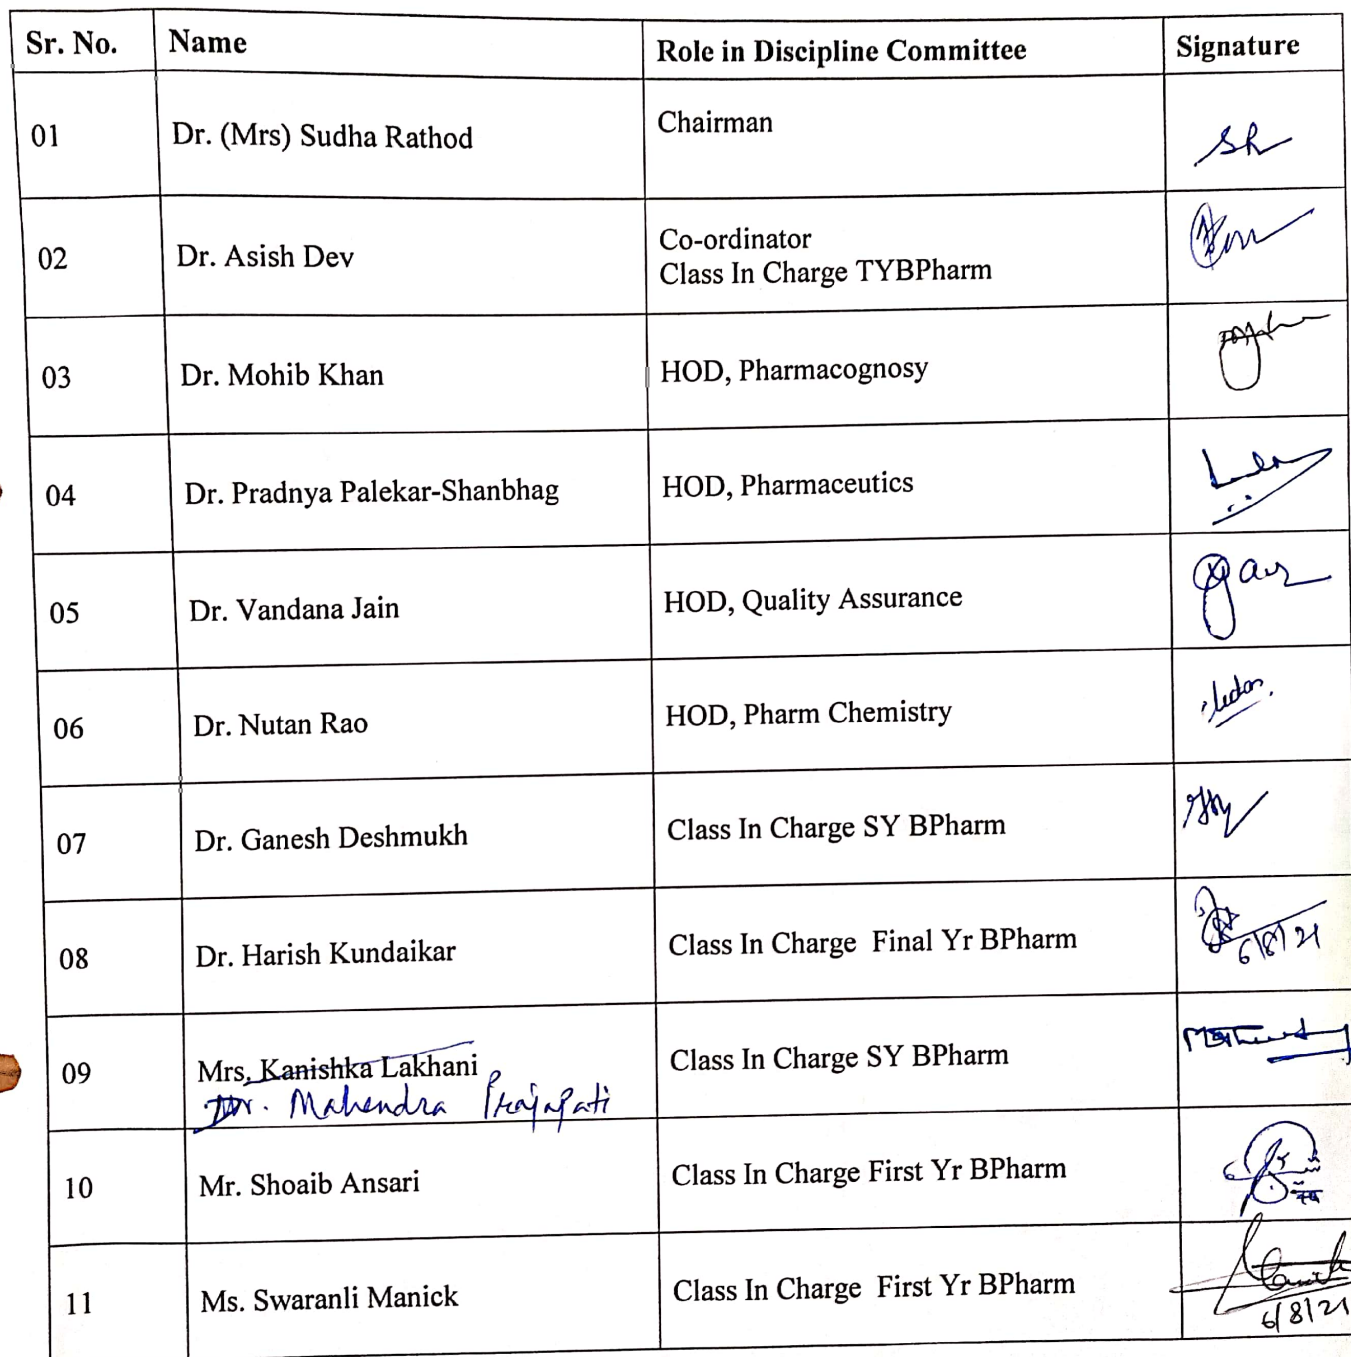 Sr. No. Name Role in Discipline Committee Signature
01 Dr. (Mrs) Sudha Rathod Chairman
02 Dr. Asish Dev Co-ordinator
Class In Charge TYBPharm
03 Dr. Mohib Khan HOD, Pharmacognosy
04 Dr. Pradnya Palekar-Shanbhag HOD, Pharmaceutics
05 Dr. Vandana Jain HOD, Quality Assurance
06 Dr. Nutan Rao HOD, Pharm Chemistry
07 Dr. Ganesh Deshmukh Class In Charge SY BPharm
08 Dr. Harish Kundaikar Class In Charge Final Yr BPharm
6/8/21
09 Mrs. Kanishka Lakhani Class In Charge SY BPharm
Dr. Mahendra Prajapati
10 Mr. Shoaib Ansari Class In Charge First Yr BPharm
11 Ms. Swaranli Manick Class In Charge First Yr BPharm
6/8/21